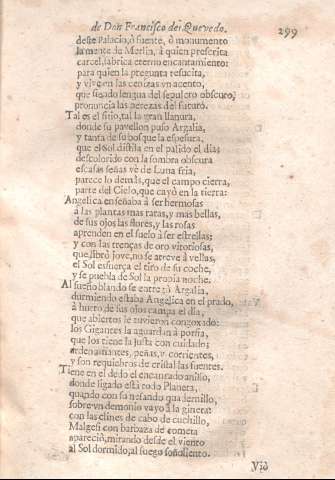 de Don Francisco de Quevedo.
299
deste Palacio, ò fuente, ò monumento
la mente de Merlin, à quien prescrita
carcel, fabrica eterno encantamiento:
para quien la pregunta resucita,
y vive en las cenizas vn acento,
que siendo lengua del sepulcro obscuro,
pronuncia las perezas del futuro.
Tal es el sitio, tal la gran llanura,
donde su pavellon puso Argalia,
y tanta de su bosque la espesura,
que el Sol distila en palido el dia;
descolorido con la sombra obscura
escasas señas vè de Luna fria,
parece lo demàs, que el campo cierra,
parte del Cielo, que cayò en la tierra:
Angelica enseñaba à ser hermosas
à las plantas mas raras, y mas bellas,
de sus ojos las flores, y las rosas
aprenden en el suelo à ser estrellas;
y con las trenças de oro vitoriosas,
que, librò jove, no se atreve à vellas,
el Sol esfuerça el tiro de su coche,
y se puebla de Sol la propia noche.
Al sueño blando se entregò Argalia,
durmiendo estaba Angelica en el prado,
à hurto de sus ojos campa el dia,
que abiertos le tuvieron congoxado:
los Gigantes la aguardan à porfia,
que los tiene la justa con cuidado;
ardenamantes, peñas, y corrientes,
y son requiebros de cristal las fuentes.
Tiene en el dedo el encantado anillo,
donde ligado està todo Planeta,
quando con su nefando quadernillo,
sobre vn demonio vayo à la gineta:
con las clines de cabo de cuchillo,
Malgesi con barbaza de cometa
apareciò, mirando desde el viento
al Sol dormido, al fuego soñoliento.
Viò